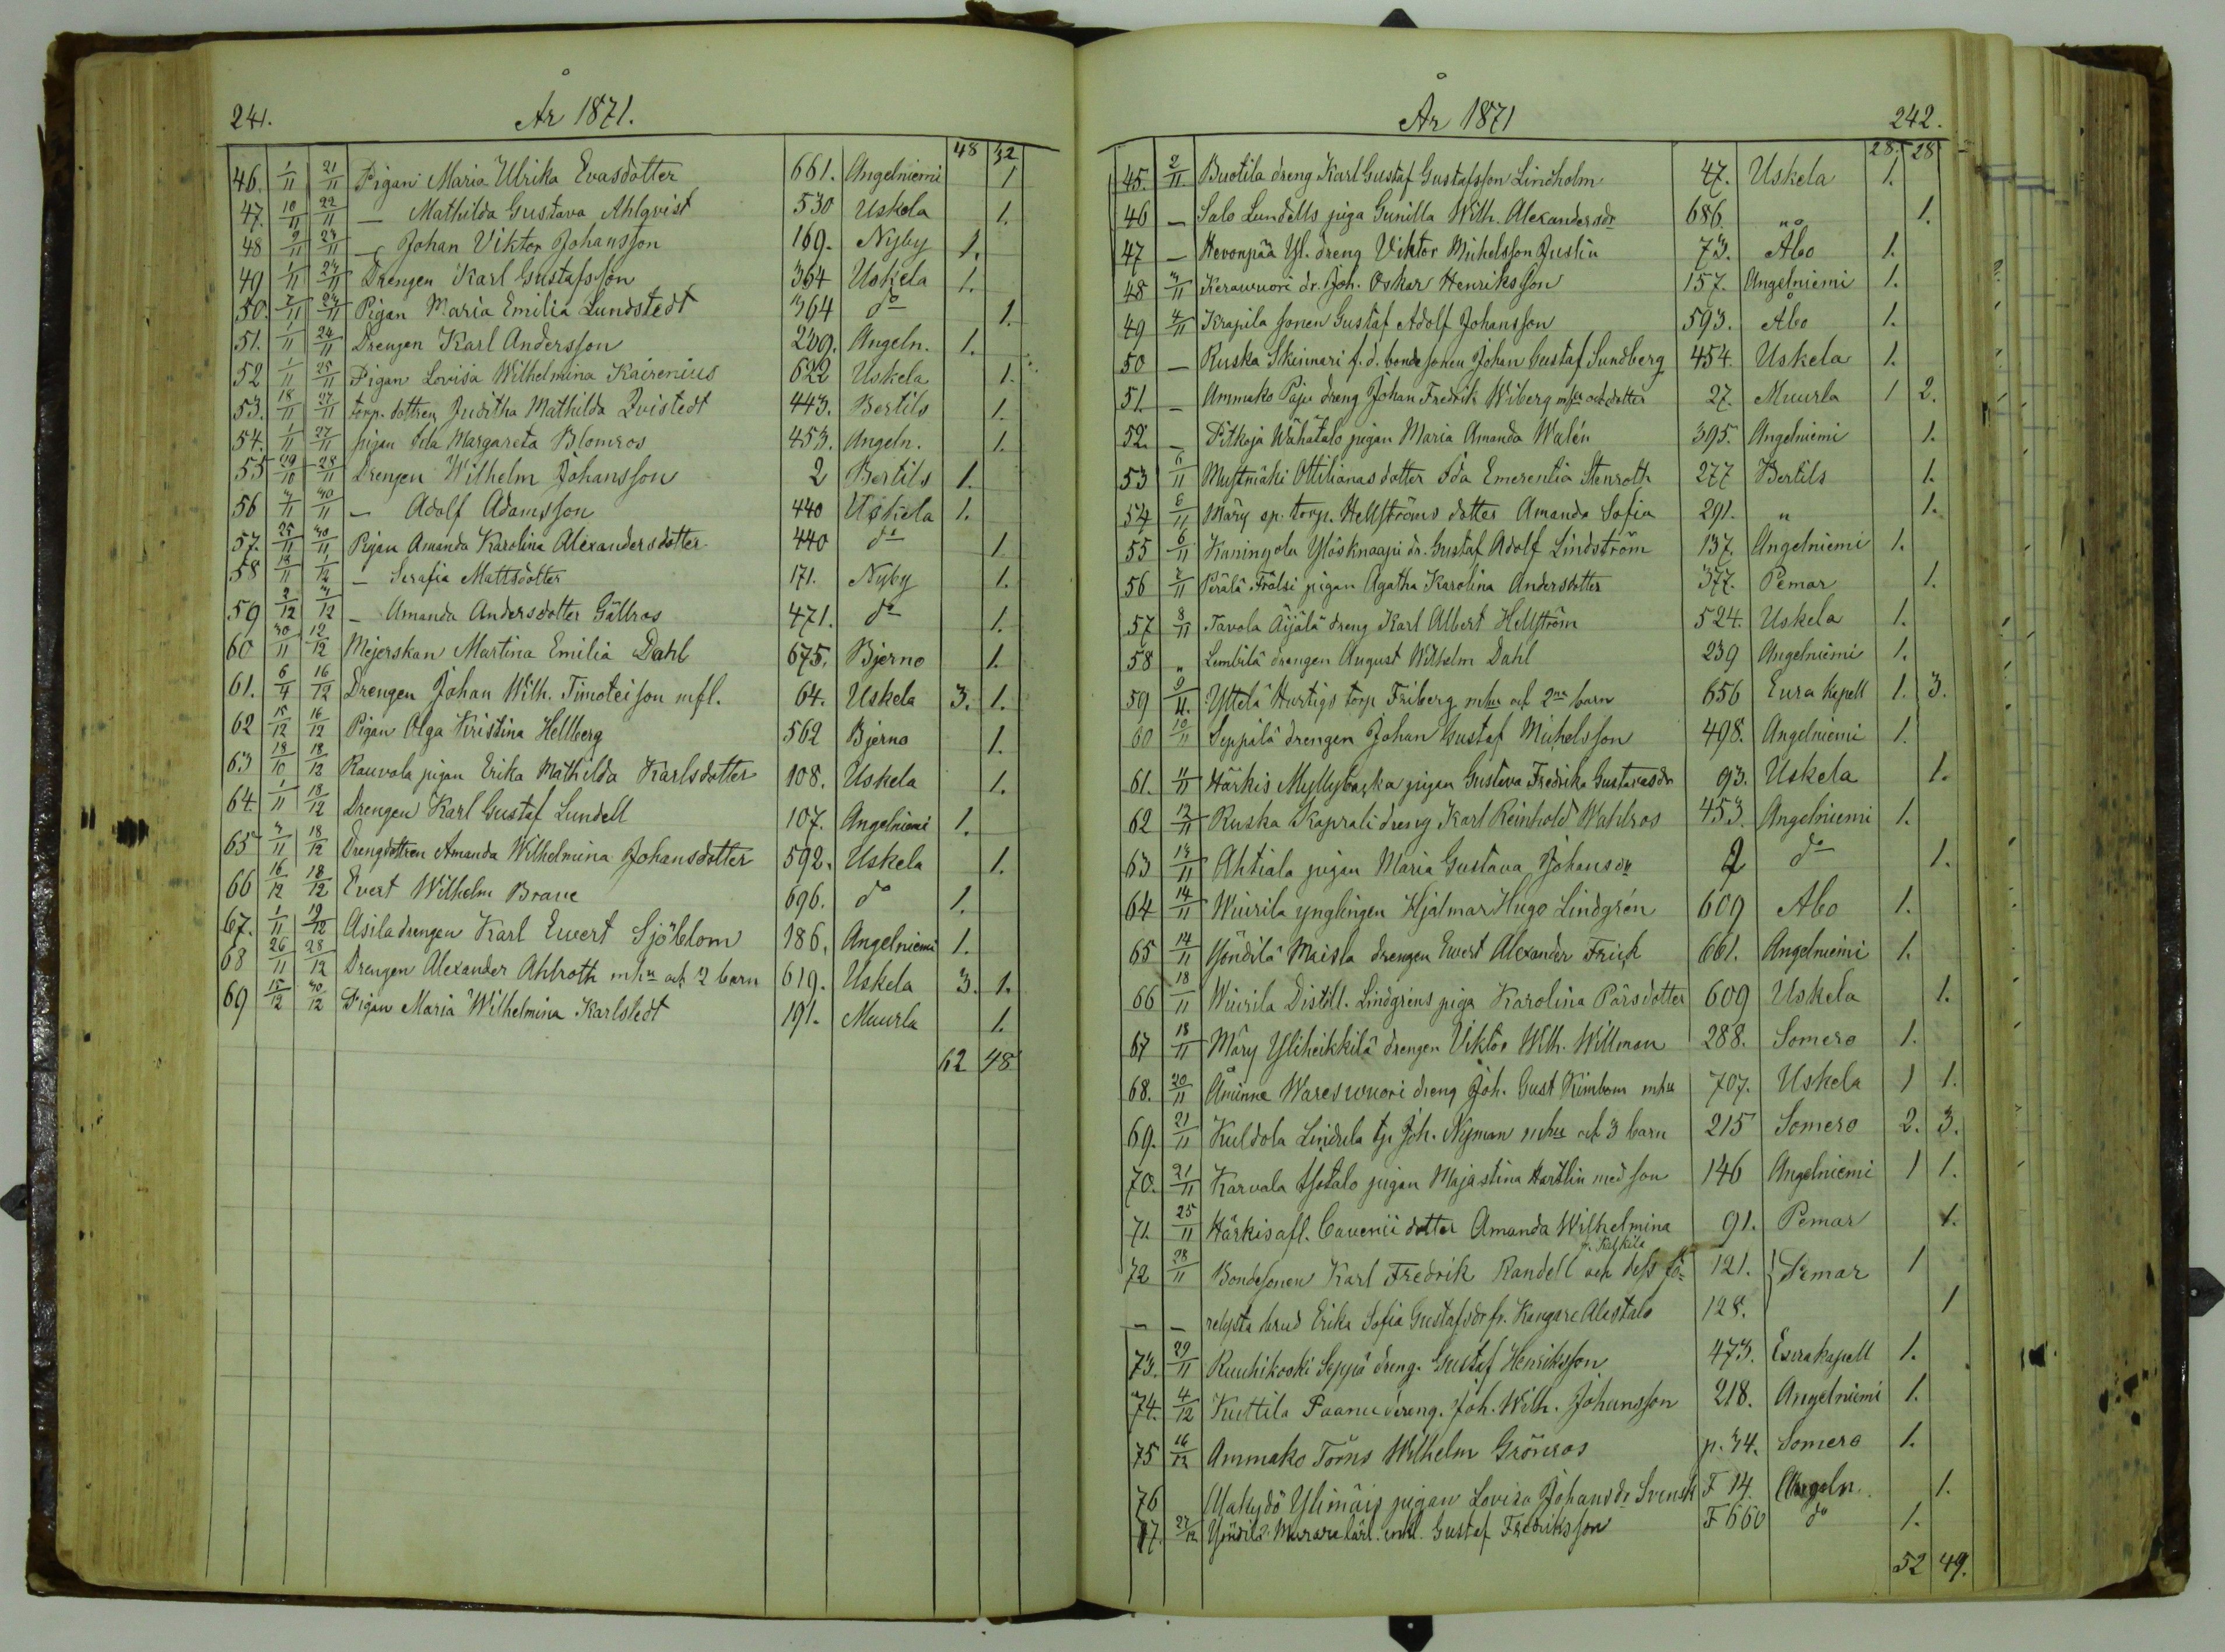 241.
År 1871.
48 32
46. 1/11 21/11 Pigan Maria Ulrika Evasdotter 661. Angelniemi 1
47. 10/11 22/11 — Mathilda Gustava Ahlqvist 530 Uskela 1.
48 9/11 23/11 — Johan Viktor Johansson 169. Nyby 1.
49 1/11 23/11 Drengen Karl Gustafsson 364 Uskela 1.
50. 2/11 23/11 Pigan Maria Emilia Lundstedt 364 do 1.
51. 1/11 24/11 Drengen Karl Andersson 209. Angeln. 1.
52 1/11 25/11 Pigan Lovisa Wilhelmina Kairenius 622 Uskela 1.
53. 18/11 27/11 torp. dottren Juditha Mathilda Qvistedt 443. Bertils 1.
54. 1/11 27/11 pigan Ida Margareta Blomros 453. Angeln. 1.
55 29/10 28/11 Drengen Wilhelm Johansson 2 Bertils 1.
56 3/11 30/11 — Adolf Adamsson 440 Uskela 1.
57. 25/11 30/11 Pigan Amanda Karolina Alexandersdotter 440 do 1
58 13/11 1/12 — Serafia Mattsdotter 171. Nyby 1.
59 2/12 3/12 — Amanda Andersdotter Gällros 471. do 1.
60 30/11 12/12 Mejerskan Martina Emilia Dahl 675. Bjerno 1.
61. 6/4 16/12 Drengen Johan Wilh. Timoteisson mfl. 64. Uskela 3. 1.
62 15/12 16/12 Pigan Olga Kristina Hellberg 562 Bjerno 1.
63 18/10 18/12 Rauvola pigan Erika Mathilda Karlsdotter 108. Uskela 1.
64. 1/11 18/12 Drengen Karl Gustaf Lundell 107. Angelniemi 1.
65 3/11 18/12 Drengdottren Amanda Wilhelmina Johansdotter 592. Uskela 1.
66 16/12 18/12 Evert Wilhelm Brave 696. do 1.
67. 1/11 19/12 Asila drengen Karl Ewert Sjöblom 186. Angelniemi 1.
68 26/11 28/12 Drengen Alexander Ahlroth mhu och 2 barn 619. Uskela 3. 1.
69 15/12 30/12 Pigan Maria Wilhelmina Karlstedt 191. Muurla 1.
62 48
År 1871
242.
28. 28
45. 2/11 Buotila dreng Karl Gustaf Gustafsson Lindholm 47. Uskela 1.
46 — Salo Lundells piga Gunilla Wilh. Alexandersdr 686. 1.
47 — Hevonpää Yl. dreng Viktor Michelsson Juslin 73. Åbo 1.
48 3/11 Kerawuori dr. Joh. Oskar Henriksson 157. Angelniemi 1.
49 4/11 Krapila sonen Gustaf Adolf Johansson 593. Åbo 1.
50 — Ruska Skinnari f. d. bondesonen Johan Gustaf Sundberg 454. Uskela 1.
51. — Ammako Paju dreng Johan Fredrik Wiberg mhu och dotter 27. Muurla 1 2.
52. — Pitkoja Wähätalo pigan Maria Amanda Walén 395. Angelniemi 1.
53 6/11 Mustmäki Ottilianas dotter Ida Emerentia Stenroth 277 Bertils 1.
54 6/11 Märy sp. torp. Hellströms dotter Amanda Sofia 291. " 1.
55 6/11 Kaningola Ylösknaapi dr. Gustaf Adolf Lindström 137. Angelniemi 1.
56 7/11 Perälä Frälsi pigan Agatha Karolina Andersdotter 377. Pemar 1.
57 8/11 Tavola Äijälä dreng Karl Albert Hellström 524. Uskela 1.
58 " Lembilä drengen August Wilhelm Dahl 239 Angelniemi 1.
59 9/11 Yttelä Hurtigs torp Friberg mhu och 2ne barn 656 Eura kapell 1. 3.
60 10/11 Seppälä drengen Johan Gustaf Michelsson 498. Angelniemi 1.
61. 11/11 Härkis Myllybacka pigan Gustava Fredrika Gustavasdr 93. Uskela 1.
62 12/11 Ruska Kaprali dreng Karl Reinhold Wahlros 453. Angelniemi 1.
63 13/11 Ahtiala pigan Maria Gustava Johansdr 2 do 1.
64 14/11 Wiurila ynglingen Hjalmar Hugo Lindgrén 609 Åbo 1.
65 14/11 Yöndilä Maisla drengen Ewert Alexander Frick 661. Angelniemi 1.
66 18/11 Wiurila Distill. Lindgréns piga Karolina Pärsdotter 609 Uskela 1.
67 18/11 Märy Yliheikkilä drengen Viktor Wilh. Willman 288. Somero 1.
68. 20/11 Åminne Wareswuori dreng Joh. Gust Kimbom mhu 707. Uskela 1 1.
69. 21/11 Kuldola Lindula tp Joh. Nyman mhu och 3 barn 215 Somero 2. 3.
70. 21/11 Karvala Isotalo pigan Majastina Hartlin med son 146 Angelniemi 1 1.
71. 25/11 Härkis afl. Cavenii dotter Amanda Wilhelmina 91. Pemar 1.
72 28/11 Bondesonen Karl Fredrik Randell och dess fö- 121. Pemar 1
— — relysta brud Erika Sofia Gustafsdr fr. Kangare Alastalo 128. 1
73. 29/11 Ruuhikoski Seppä dreng. Gustaf Henriksson 473. Eura kapell 1.
74. 4/12 Kuttila Paanu dreng. Joh. Wilh. Johansson 218. Angelniemi 1.
75 16/12 Ammako Törns Wilhelm Grönros p. 34. Somero 1.
76 Ylimäis pigan Lovisa Johansdr Svensk F 14. Angeln. 1.
77. 27/12 Yöndilä Murare lärl. Gustaf Fredriksson F 660 do 1.
52 49.